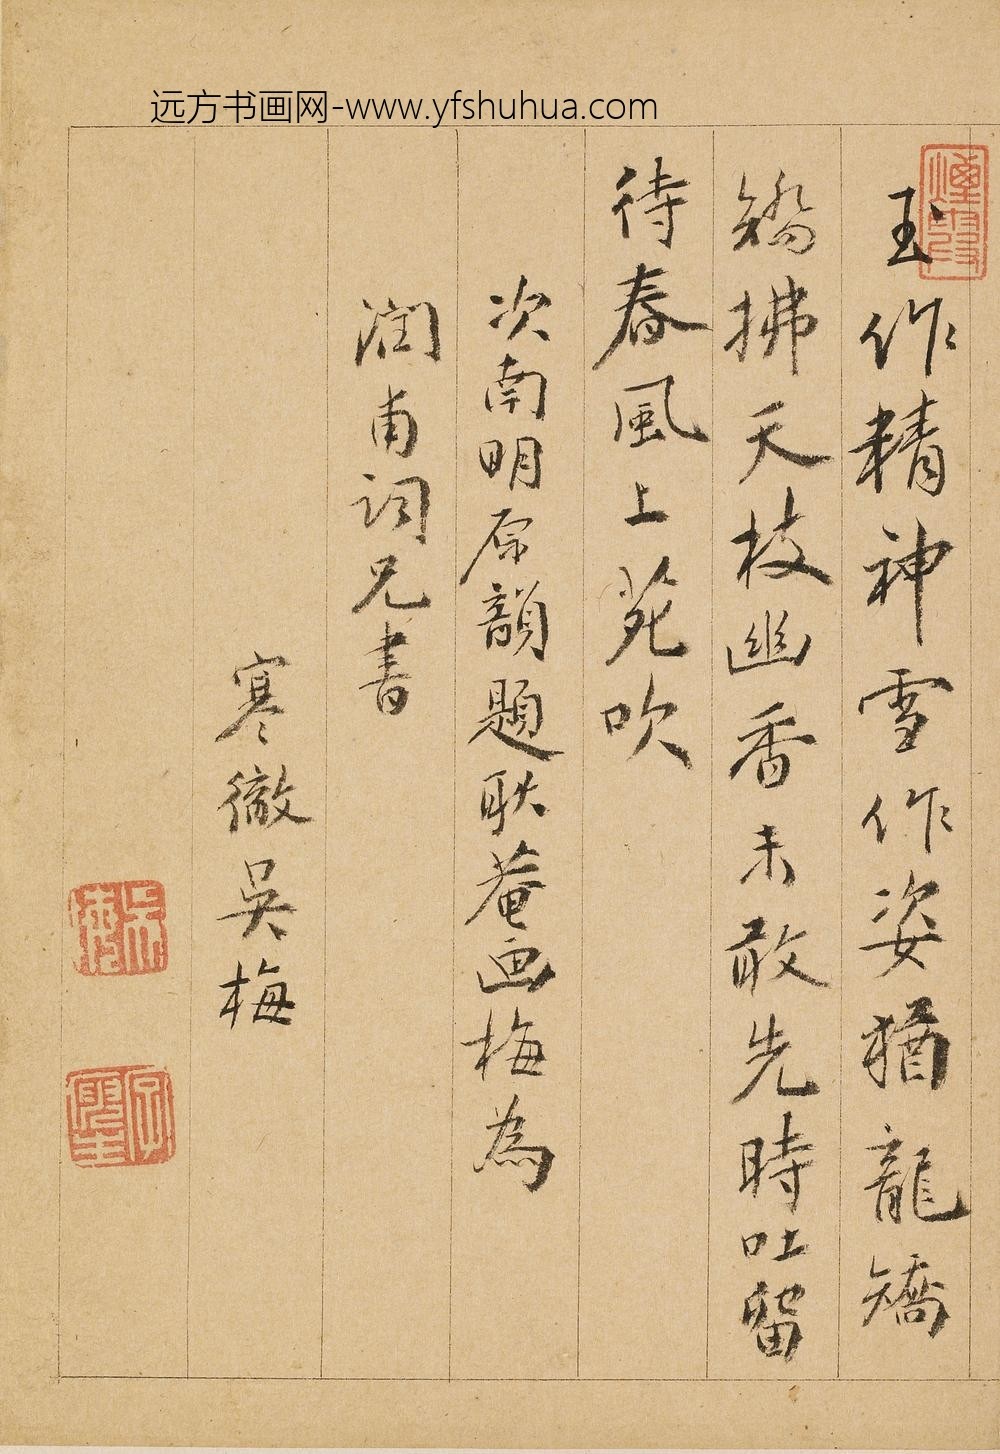 远方书画网-www.yfshuhua.com
玉作精神雪作姿猶龍矯
矯拂天枝幽香未敢先時吐留
待春風上苑吹
次南明原韻題耿菴画梅為
潤甫詞兄書
寒徹吳梅
煙霞